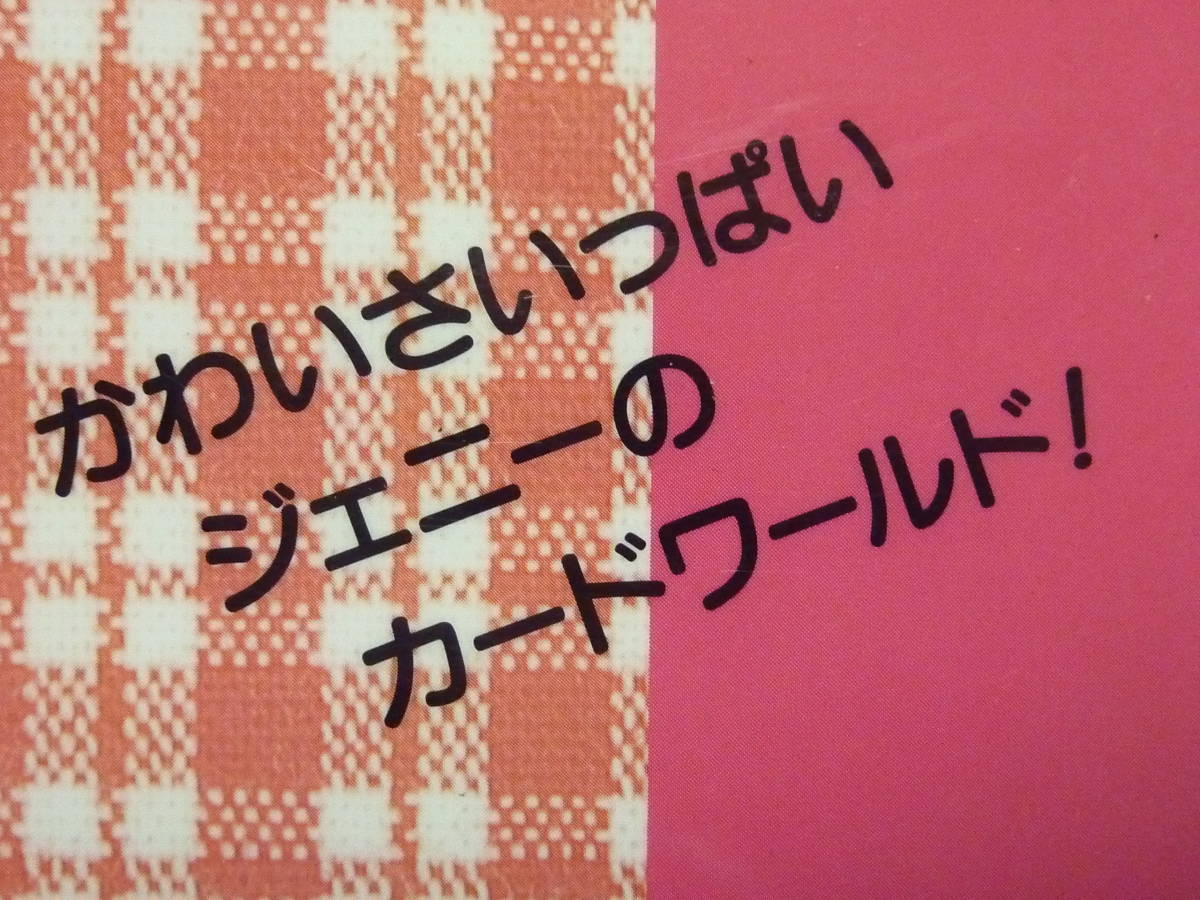 かわいさいっぱい
ジェニーの
カードワールド!